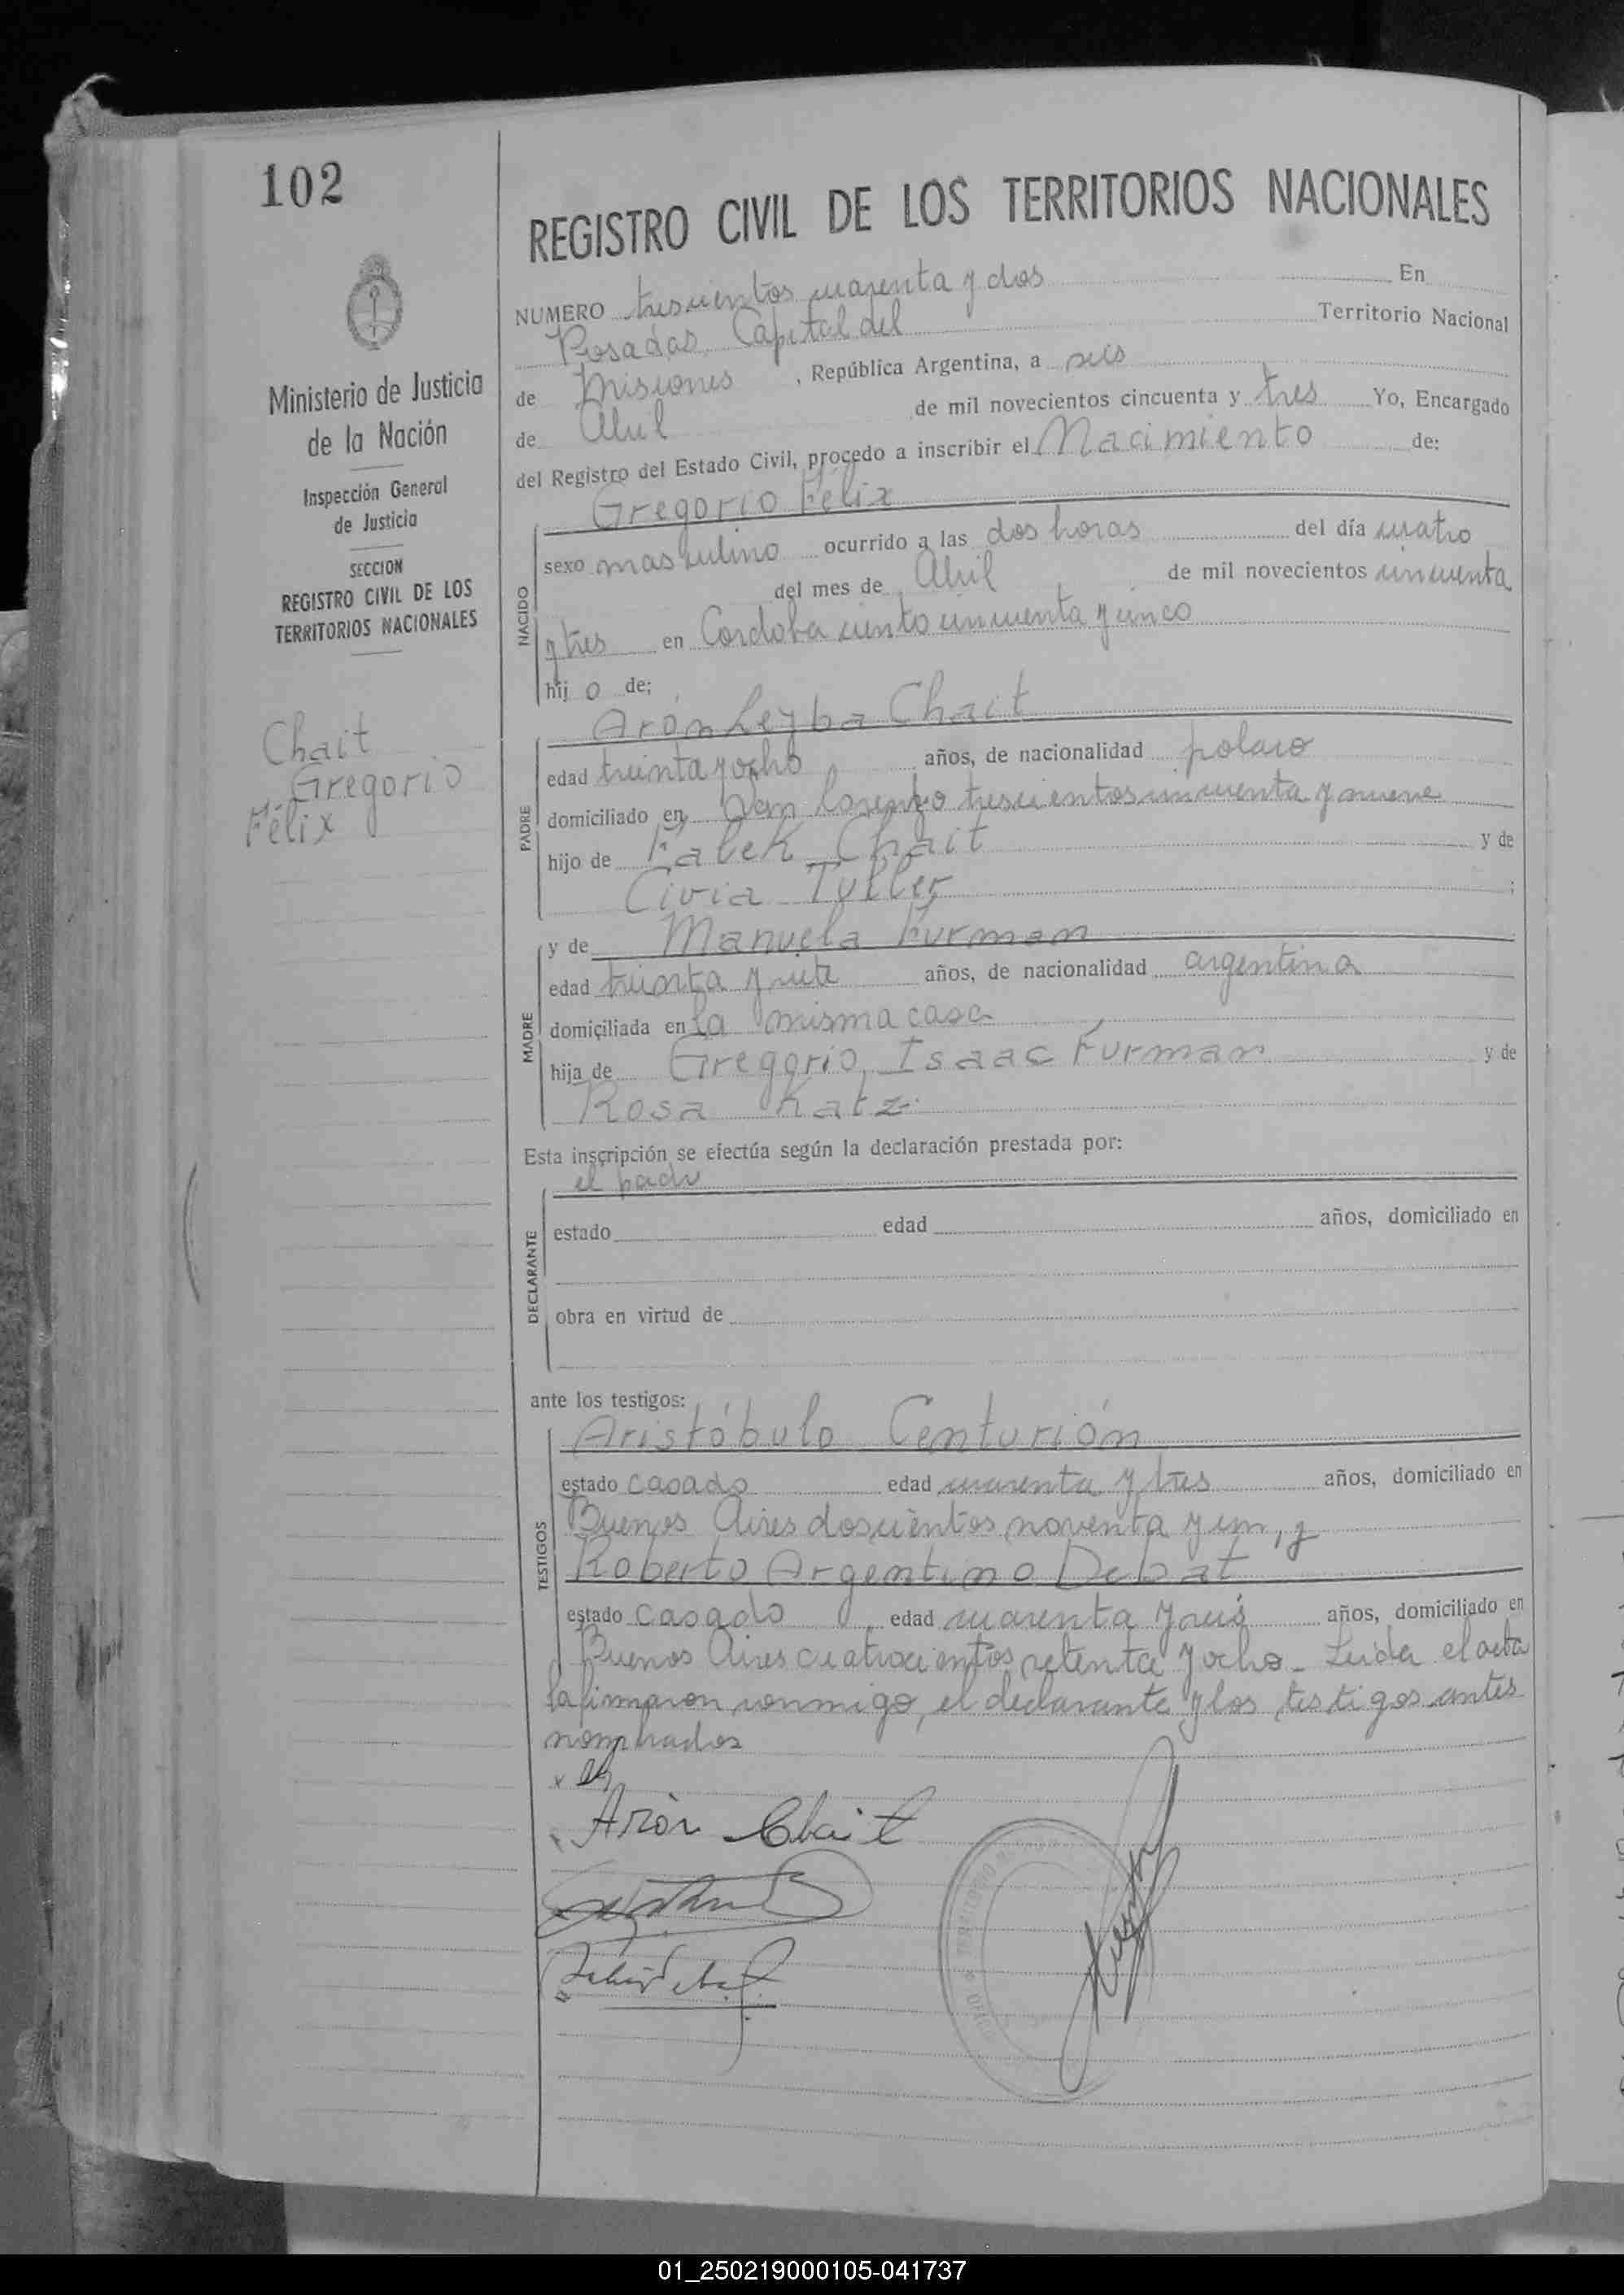 102
Ministerio de Justicia
de la Nación
Inspección General
de Justicia
SECCION
REGISTRO CIVIL DE LOS
TERRITORIOS NACIONALES
Chait
Gregorio
Félix
REGISTRO CIVIL DE LOS TERRITORIOS NACIONALES
NUMERO trescientos cuarenta y dos En
Posadas, Capital del Territorio Nacional
de Misiones, República Argentina, a seis
de Abril de mil novecientos cincuenta y tres Yo, Encargado
del Registro del Estado Civil, procedo a inscribir el Nacimiento de:
Gregorio Félix
NACIDO
sexo masculino ocurrido a las dos horas del día cuatro
del mes de Abril de mil novecientos cincuenta
y tres en Cordoba ciento cincuenta y cinco
hijo de;
Arón Leyba Chait
PADRE
edad treinta y ocho años, de nacionalidad polaco
domiciliado en San Lorenzo trescientos cincuenta y nueve
hijo de Falek Chait y de
Civia Tuller;
MADRE
y de Manuela Furman
edad treinta y siete años, de nacionalidad argentina
domiciliada en la misma casa
hija de Gregorio Isaac Furman y de
Rosa Katz
Esta inscripción se efectúa según la declaración prestada por:
el padre
DECLARANTE
estado edad años, domiciliado en
obra en virtud de
ante los testigos:
Aristóbulo Centurión
TESTIGOS
estado casado edad cuarenta y tres años, domiciliado en
Buenos Aires doscientos noventa y un, y
Roberto Argentino Debat
estado casado edad cuarenta y seis años, domiciliado en
Buenos Aires cuatrocientos setenta y ocho - Leída el acta
la firmaron conmigo, el declarante y los testigos antes
nombrados
Arón Chait
01_250219000105-041737